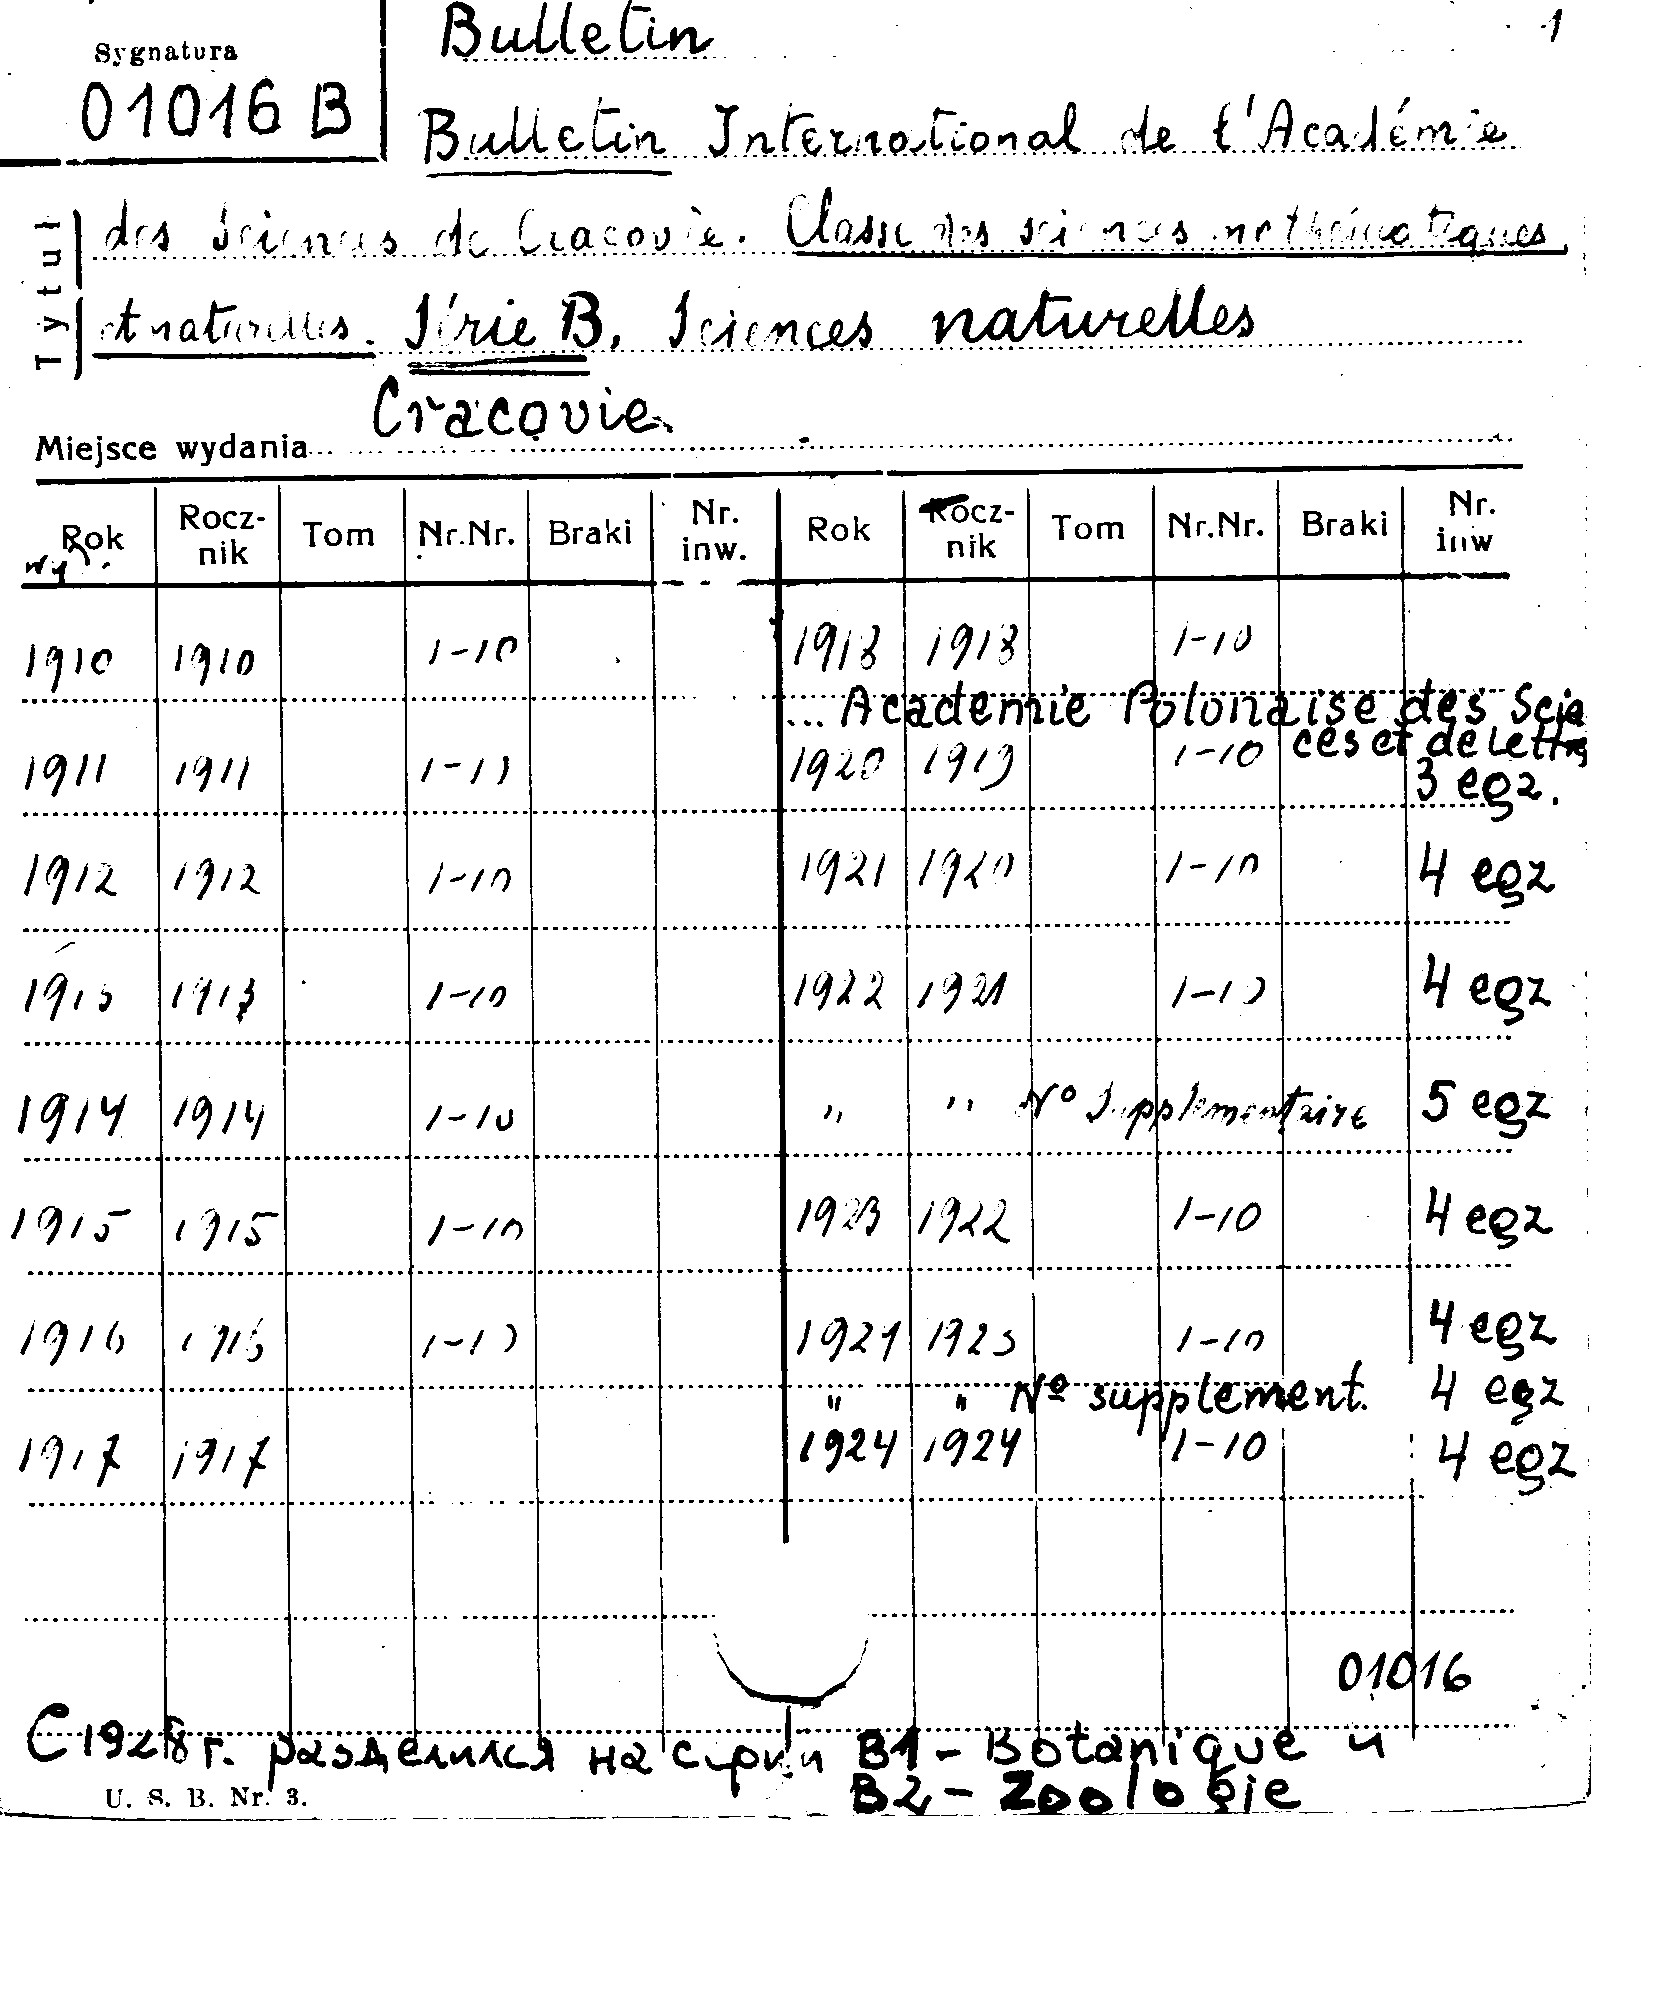 Bulletin 1
Sygnatura
01016 B
Bulletin International de l'Académie
Tytuł
des Sciences de Cracovie. Classe des sciences mathématiques
et naturelles. Série B. Sciences naturelles
Miejsce wydania Cracovie
Rok wyd. Rocznik Tom Nr.Nr. Braki Nr. inw. Rok Rocznik Tom Nr.Nr. Braki Nr. inw
1910 1910 1-10 1918 1918 1-10
... Academie Polonaise des Scie
ces et de Lettres
1911 1911 1-10 1920 1919 1-10 3 egz.
1912 1912 1-10 1921 1920 1-10 4 egz
1913 1913 1-10 1922 1921 1-10 4 egz
1914 1914 1-10 " " No Supplementaire 5 egz
1915 1915 1-10 1923 1922 1-10 4 egz
1916 1916 1-10 1924 1923 1-10 4 egz
" " No supplement. 4 egz
1917 1917 1924 1924 1-10 4 egz
01016
С 1928 г. разделился на серии B1 - Botanique и
B2 - Zoologie
U. S. B. Nr. 3.